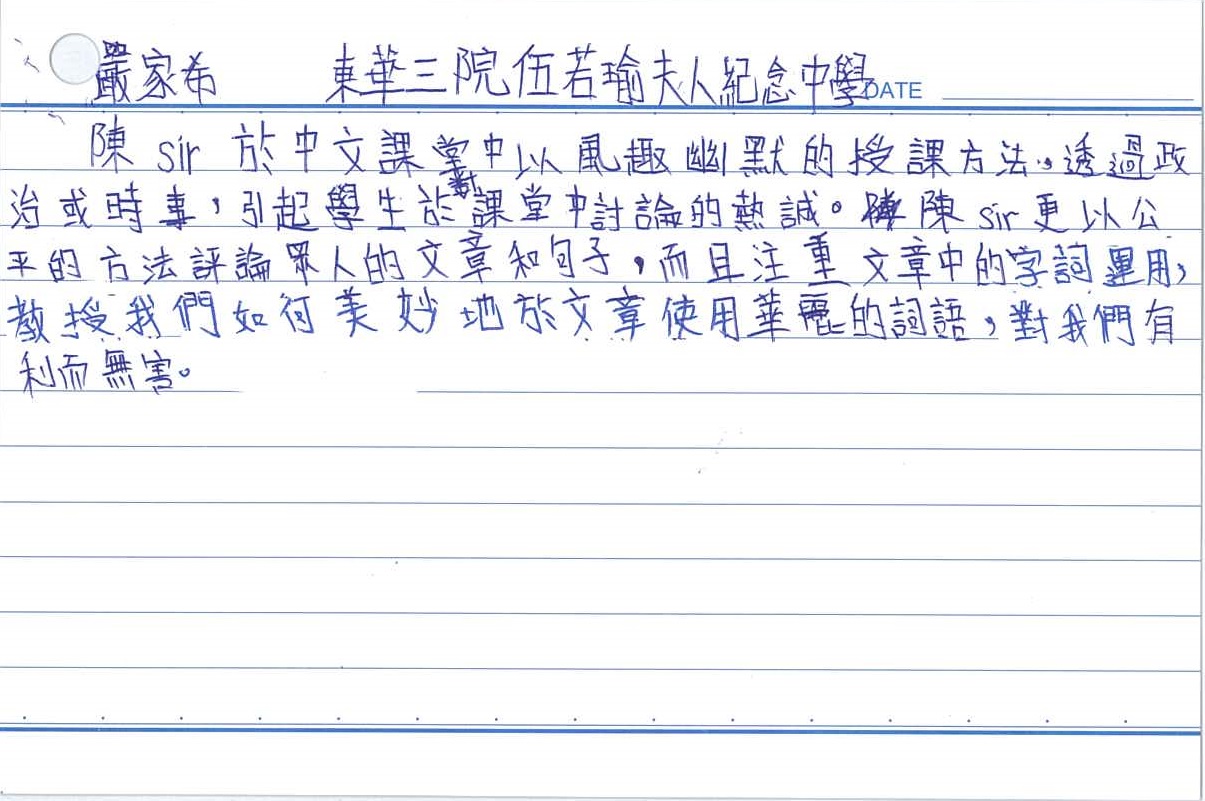 嚴家希 東華三院伍若瑜夫人紀念中學 DATE
陳 sir 於中文課堂中以風趣幽默的授課方法，透過政
治或時事，引起學生於對課堂中討論的熱誠。陳 sir 更以公
平的方法評論眾人的文章和句子，而且注重文章中的字詞運用，
教授我們如何美妙地於文章使用華麗的詞語，對我們有
利而無害。